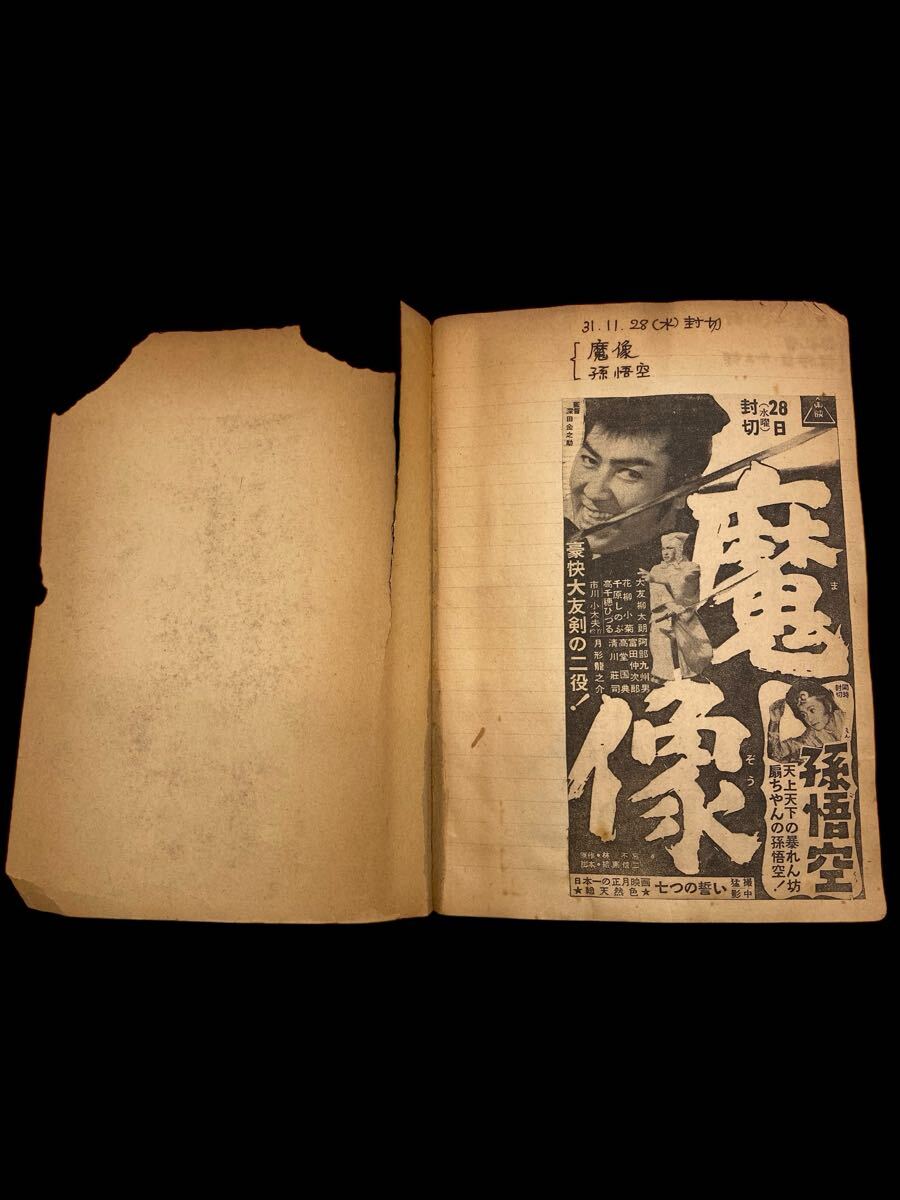 31.11.28(水)封切
魔像
孫悟空
28日
(水曜)
封切
監督
深田金之助
魔像
ま
ぞう
豪快大友剣の二役!
大友柳太朗
花柳小菊
千原しのぶ
高千穂ひづる
市川小太夫
阿部九州男
富田仲次郎
高堂国典
清川荘司
月形龍之介
同時
封切
孫悟空
天上天下の暴れん坊
扇ちやんの孫悟空!
原作・林不忘
日本一の正月映画
★総天然色★
七つの誓い
猛撮
影中